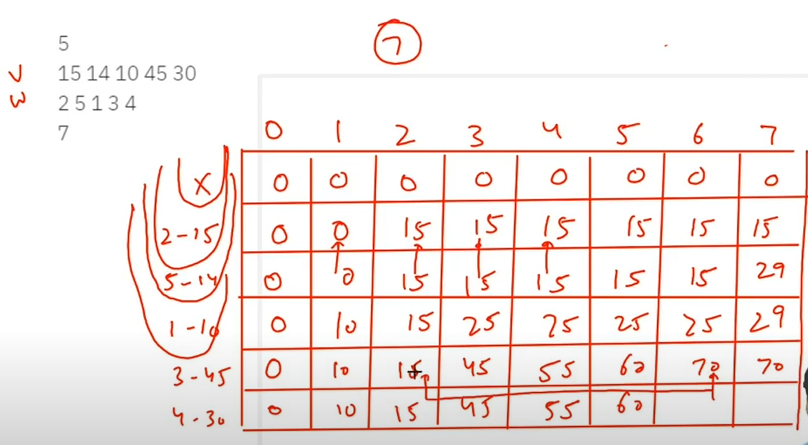 5
7
V 15 14 10 45 30
W 2 5 1 3 4
7
0 1 2 3 4 5 6 7
X 0 0 0 0 0 0 0 0
2-15 0 0 15 15 15 15 15 15
5-14 0 0 15 15 15 15 15 29
1-10 0 10 15 25 25 25 25 29
3-45 0 10 15 45 55 60 70 70
4-30 0 10 15 45 55 60